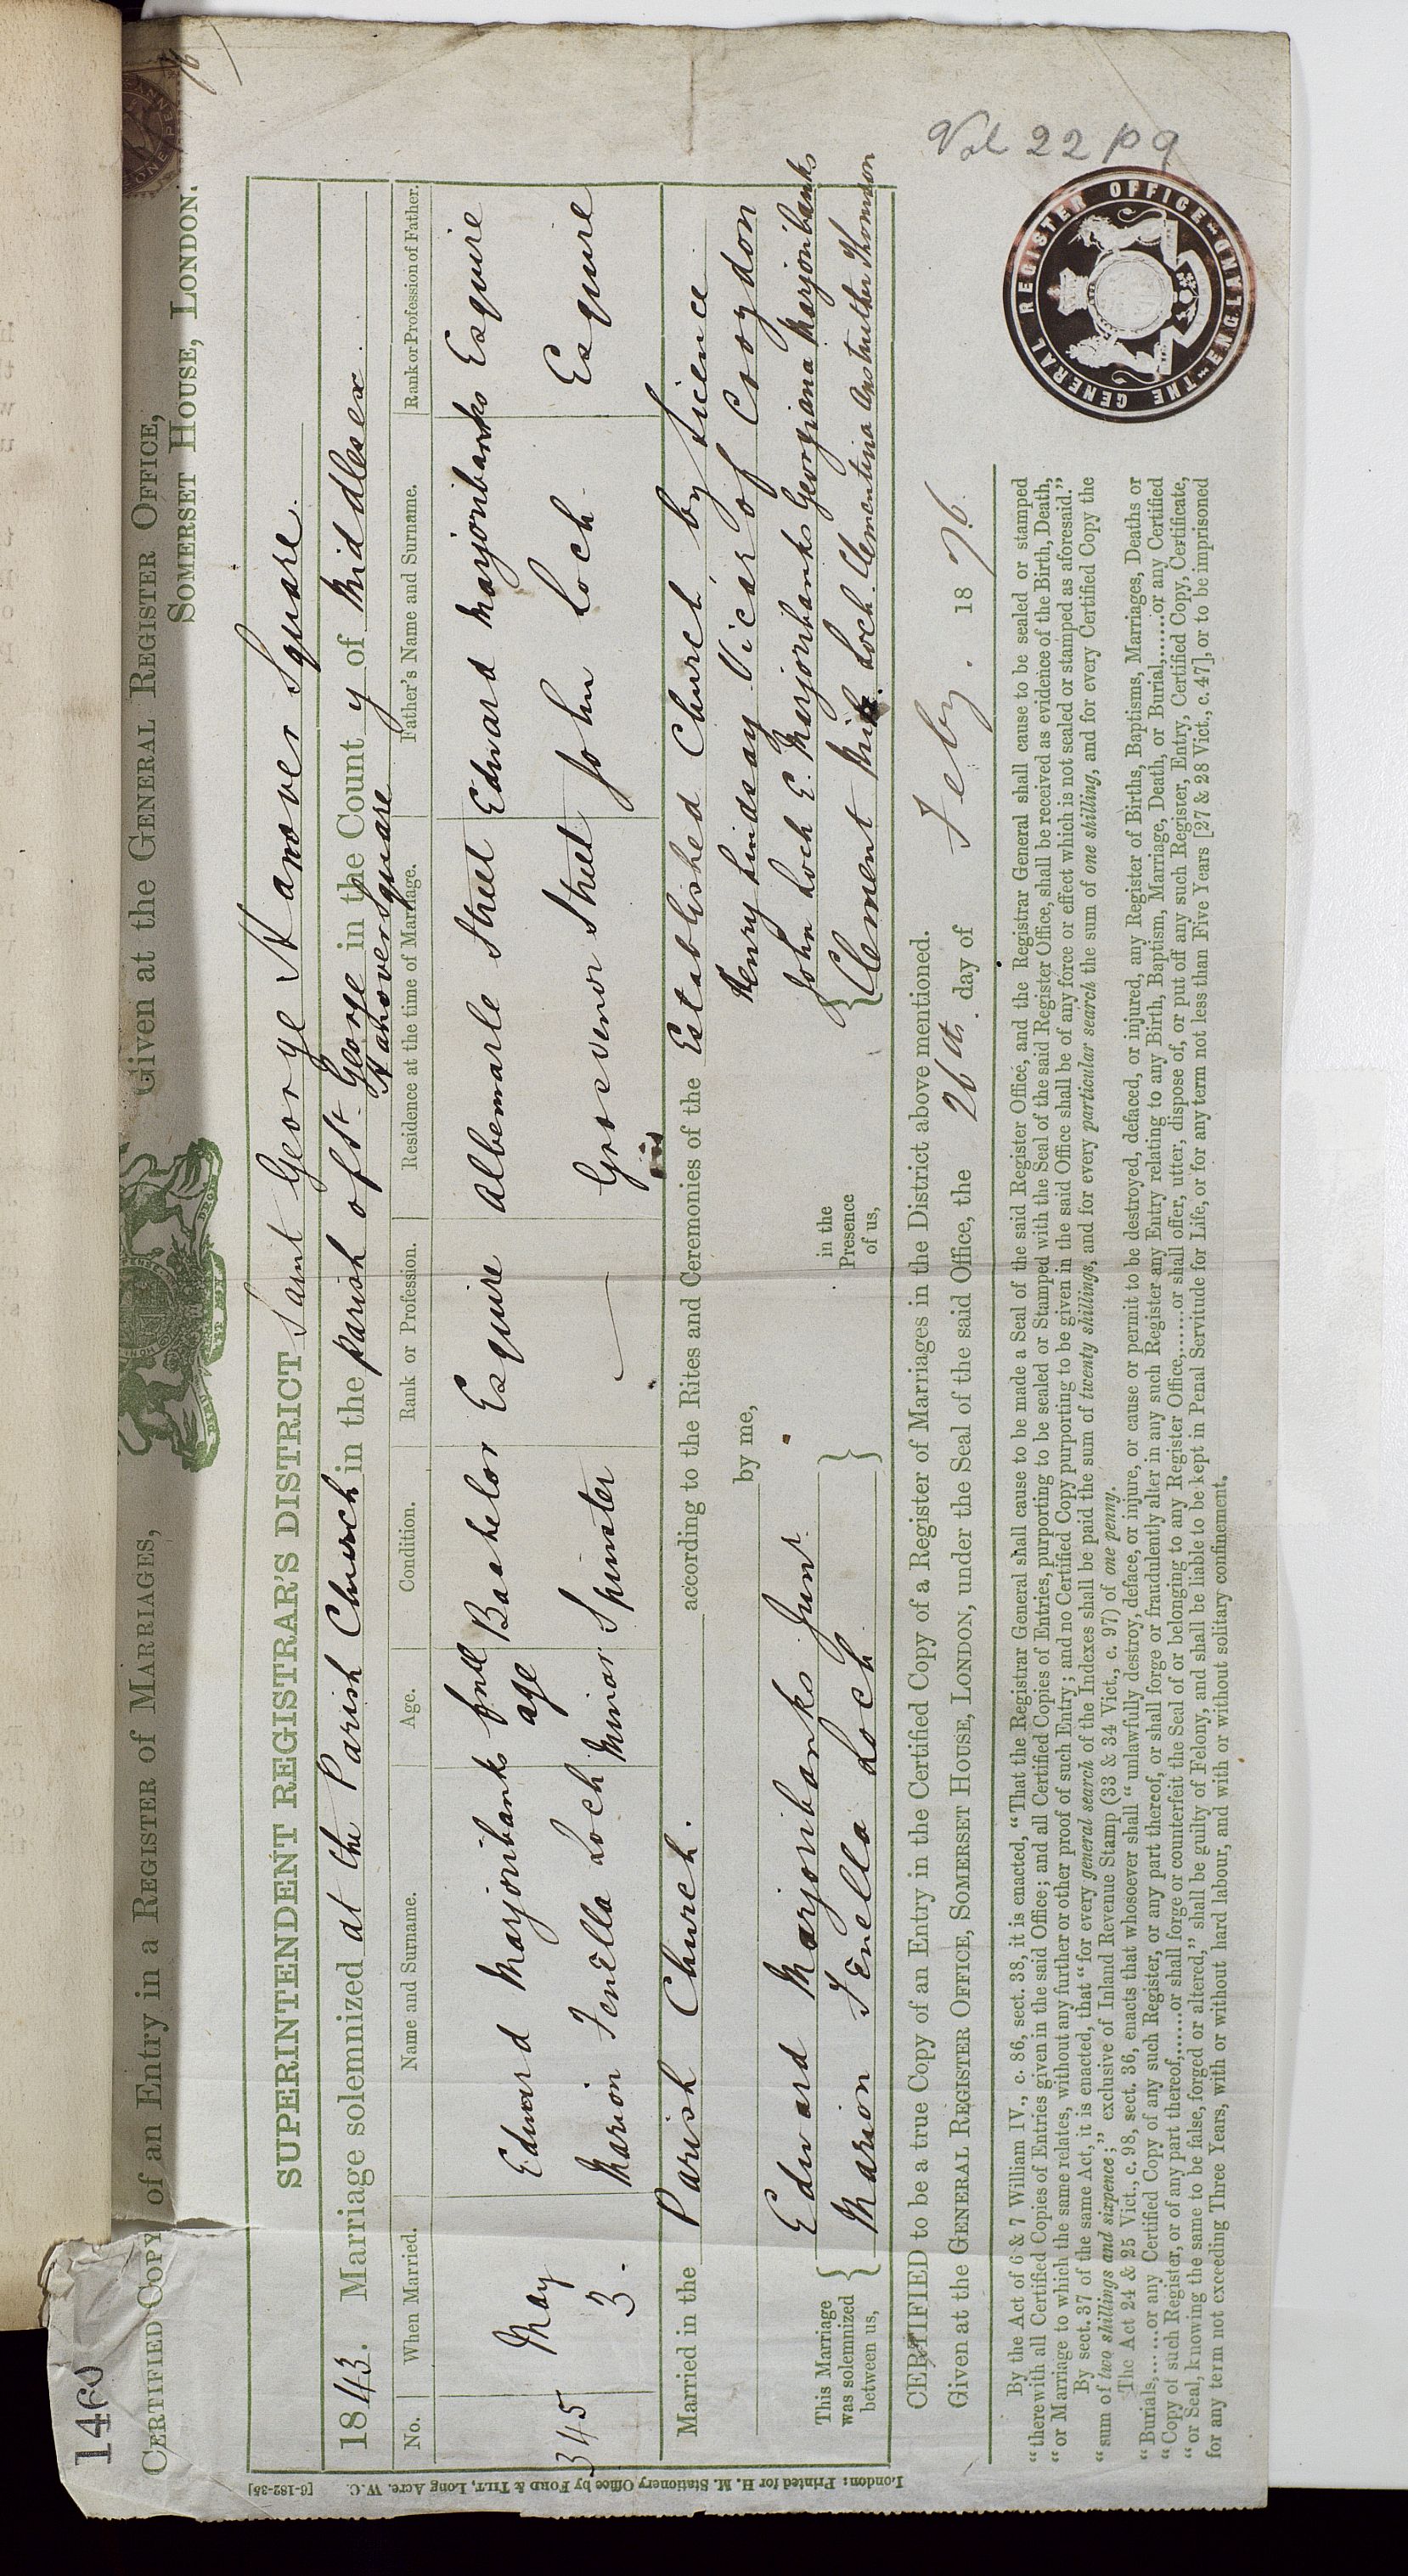 1460
CERTIFIED COPY of an Entry in a REGISTER of MARRIAGES,
Given at the GENERAL REGISTER OFFICE,
SOMERSET HOUSE, LONDON.
SUPERINTENDENT REGISTRAR'S DISTRICT Saint George Hanover Square.
1843. Marriage solemnized at the Parish Church in the parish of St. George Hanover Square in the County of Middlesex.
No. When Married. Name and Surname. Age. Condition. Rank or Profession. Residence at the time of Marriage. Father's Name and Surname. Rank or Profession of Father.
345 May 3. Edward Marjoribanks full age Bachelor Esquire Albemarle Street Edward Marjoribanks Esquire
Marion Fenella Loch Minor Spinster — Grosvenor Street John Loch Esquire
Married in the Parish Church. according to the Rites and Ceremonies of the Established Church by Licence
by me, Henry Lindsay Vicar of Croydon
This Marriage was solemnized between us, { Edward Marjoribanks Junr. } in the Presence of us, { John Loch E. Marjoribanks Georgiana Marjoribanks
Marion Fenella Loch Clement Loch. Clementina Anstruther Thomson
CERTIFIED to be a true Copy of an Entry in the Certified Copy of a Register of Marriages in the District above mentioned.
Given at the GENERAL REGISTER OFFICE, SOMERSET HOUSE, LONDON, under the Seal of the said Office, the 26th. day of Feby. 1876.
By the Act of 6 & 7 William IV., c. 86, sect. 38, it is enacted, "That the Registrar General shall cause to be made a Seal of the said Register Office, and the Registrar General shall cause to be sealed or stamped
"therewith all Certified Copies of Entries given in the said Office; and all Certified Copies of Entries, purporting to be sealed or Stamped with the Seal of the said Register Office, shall be received as evidence of the Birth, Death,
"or Marriage to which the same relates, without any further or other proof of such Entry; and no Certified Copy purporting to be given in the said Office shall be of any force or effect which is not sealed or stamped as aforesaid."
By sect. 37 of the same Act, it is enacted, that "for every general search of the Indexes shall be paid the sum of twenty shillings, and for every particular search the sum of one shilling, and for every Certified Copy the
"sum of two shillings and sixpence;" exclusive of Inland Revenue Stamp (33 & 34 Vict., c. 97) of one penny.
The Act 24 & 25 Vict., c. 98, sect. 36, enacts that whosoever shall "unlawfully destroy, deface, or injure, or cause or permit to be destroyed, defaced, or injured, any Register of Births, Baptisms, Marriages, Deaths or
"Burials,......or any Certified Copy of any such Register, or any part thereof, or shall forge or fraudulently alter in any such Register any Entry relating to any Birth, Baptism, Marriage, Death, or Burial,......or any Certified
"Copy of such Register, or of any part thereof,......or shall forge or counterfeit the Seal of or belonging to any Register Office,......or shall offer, utter, dispose of, or put off any such Register, Entry, Certified Copy, Certificate,
"or Seal, knowing the same to be false, forged or altered," shall be guilty of Felony, and shall be liable to be kept in Penal Servitude for Life, or for any term not less than Five Years [27 & 28 Vict., c. 47], or to be imprisoned
for any term not exceeding Three Years, with or without hard labour, and with or without solitary confinement.
London: Printed for H. M. Stationery Office by FORD & TILT, Long Acre. W.C. [6-182-35]
Vol 22 p 9
THE GENERAL REGISTER OFFICE ENGLAND